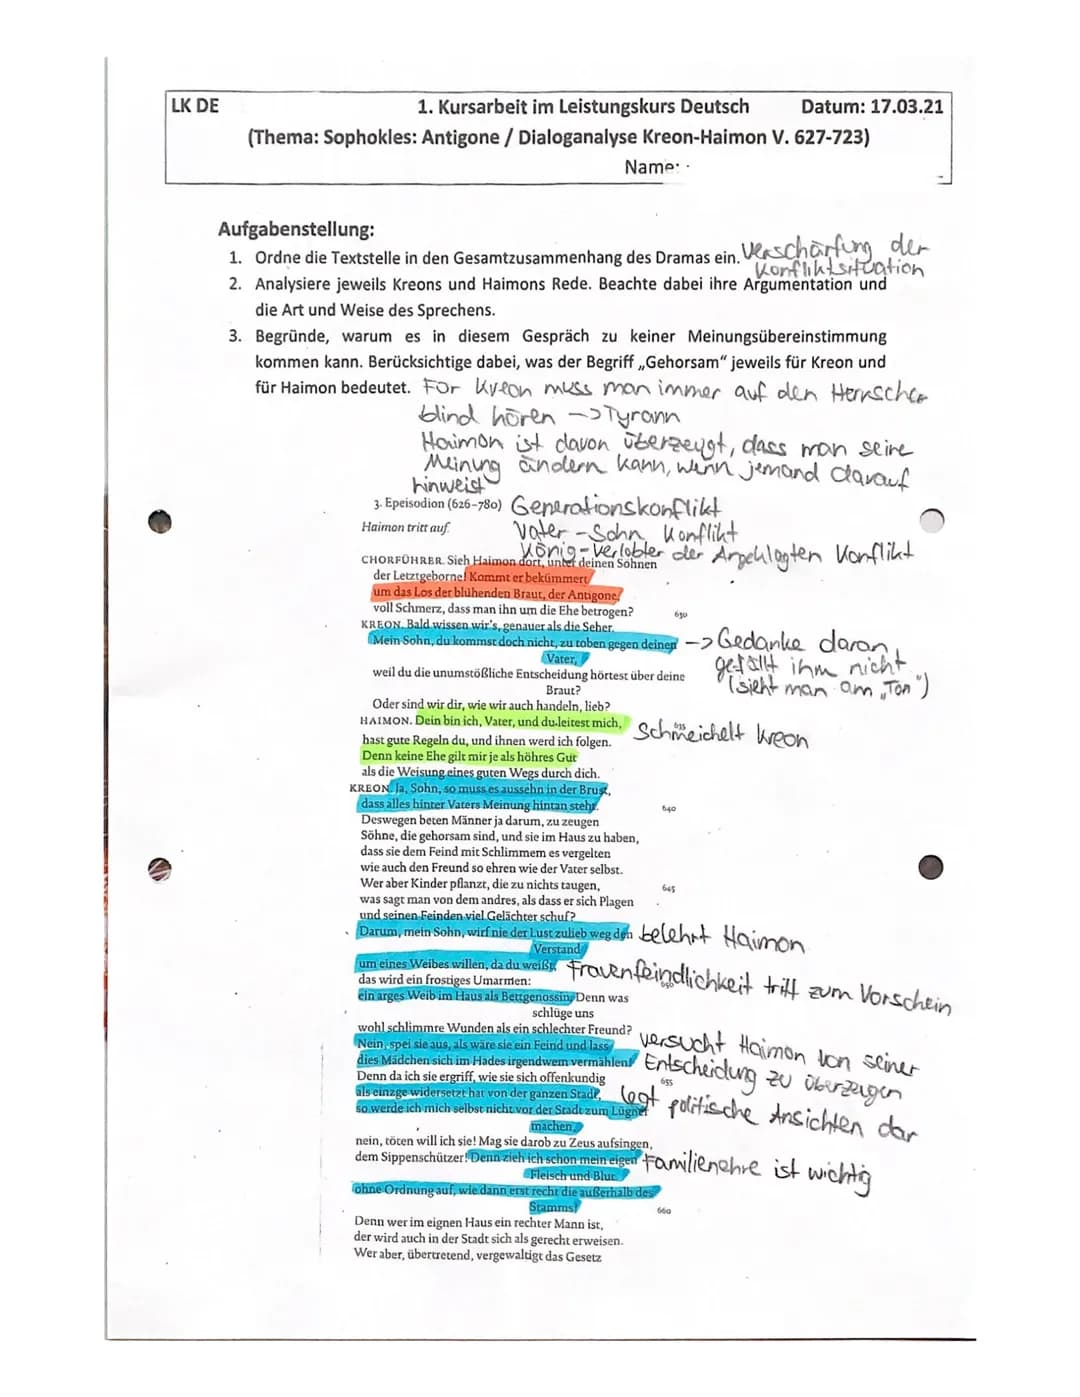 LK DE 1. Kursarbeit im Leistungskurs Deutsch Datum: 17.03.21
(Thema: Sophokles: Antigone / Dialoganalyse Kreon-Haimon V. 627-723)
Name:
Aufgabenstellung:
1. Ordne die Textstelle in den Gesamtzusammenhang des Dramas ein. Verschärfung der
Konfliktsituation
2. Analysiere jeweils Kreons und Haimons Rede. Beachte dabei ihre Argumentation und
die Art und Weise des Sprechens.
3. Begründe, warum es in diesem Gespräch zu keiner Meinungsübereinstimmung
kommen kann. Berücksichtige dabei, was der Begriff „Gehorsam“ jeweils für Kreon und
für Haimon bedeutet. Für Kreon muss man immer auf den Herrscher
blind hören -> Tyrann
Haimon ist davon überzeugt, dass man seine
Meinung ändern kann, wenn jemand darauf
hinweist
3. Epeisodion (626-780) Generationskonflikt
Haimon tritt auf. Vater-Sohn Konflikt
König-Verlobter der Angeklagten Konflikt
CHORFÜHRER. Sieh Haimon dort, unter deinen Söhnen
der Letztgeborne! Kommt er bekümmert
um das Los der blühenden Braut, der Antigone,
voll Schmerz, dass man ihn um die Ehe betrogen? 630
KREON. Bald wissen wir's, genauer als die Seher.
Mein Sohn, du kommst doch nicht, zu toben gegen deinen -> Gedanke daran
Vater, gefällt ihm nicht
weil du die unumstößliche Entscheidung hörtest über deine (sieht man am „Ton")
Braut?
Oder sind wir dir, wie wir auch handeln, lieb?
HAIMON. Dein bin ich, Vater, und du leitest mich, 635 Schmeichelt Kreon
hast gute Regeln du, und ihnen werd ich folgen.
Denn keine Ehe gilt mir je als höhres Gut
als die Weisung eines guten Wegs durch dich.
KREON. Ja, Sohn, so muss es aussehn in der Brust,
dass alles hinter Vaters Meinung hintan steht. 640
Deswegen beten Männer ja darum, zu zeugen
Söhne, die gehorsam sind, und sie im Haus zu haben,
dass sie dem Feind mit Schlimmem es vergelten
wie auch den Freund so ehren wie der Vater selbst.
Wer aber Kinder pflanzt, die zu nichts taugen, 645
was sagt man von dem andres, als dass er sich Plagen
und seinen Feinden viel Gelächter schuf?
Darum, mein Sohn, wirf nie der Lust zulieb weg den belehrt Haimon
Verstand
um eines Weibes willen, da du weißt, Frauenfeindlichkeit tritt zum Vorschein
das wird ein frostiges Umarmen: 650
ein arges Weib im Haus als Bettgenossin. Denn was
schlüge uns
wohl schlimmre Wunden als ein schlechter Freund?
Nein, spei sie aus, als wäre sie ein Feind und lass versucht Haimon von seiner
dies Mädchen sich im Hades irgendwem vermählen! Entscheidung zu überzeugen
Denn da ich sie ergriff, wie sie sich offenkundig 655
als einzge widersetzt hat von der ganzen Stadt, legt politische Ansichten dar
so werde ich mich selbst nicht vor der Stadt zum Lügner
machen,
nein, töten will ich sie! Mag sie darob zu Zeus aufsingen,
dem Sippenschützer! Denn zieh ich schon mein eigen Familienehre ist wichtig
Fleisch und Blut
ohne Ordnung auf, wie dann erst recht die außerhalb des
Stamms! 660
Denn wer im eignen Haus ein rechter Mann ist,
der wird auch in der Stadt sich als gerecht erweisen.
Wer aber, übertretend, vergewaltigt das Gesetz